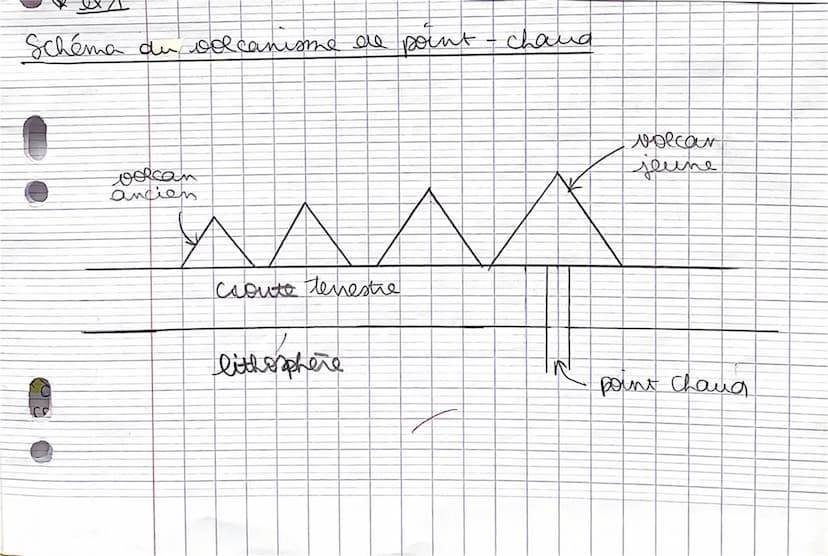 ex 1
Schéma du volcanisme de point-chaud
volcan
jeune
volcan
ancien
croute terrestre
lithosphère
point chaud